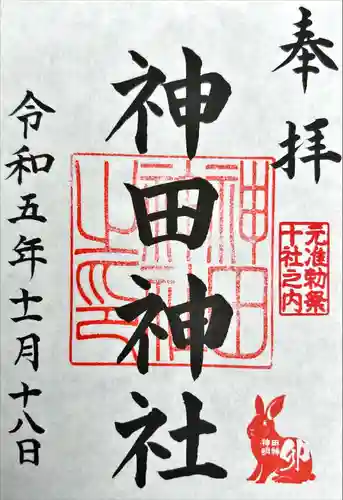 奉拝
元准勅祭
十社之内
神田神社
神田神社之印
令和五年十一月十八日
卯
神田
明神